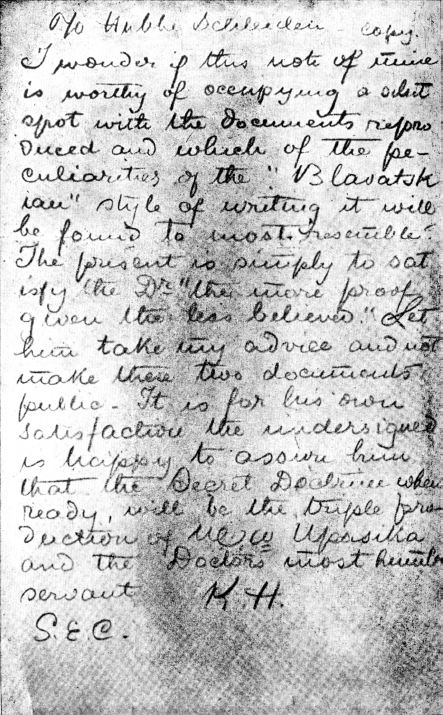 Hubbe Schleiden copy.
I wonder if this note of mine
is worthy of occupying a select
spot with the documents repro
duced and which of the pe-
culiarities of the "Blavatsk
ian" style of writing it will
be found to most resemble?
The present is simply to sat
isfy the Dr. "the more proof
given the less believed." Let
him take my advice and not
make these two documents
public. It is for his own
satisfaction the undersigned
is happy to assure him
that the Secret Doctrine when
ready, will be the triple pro-
duction of Upasika
and the Doctor's most humble
servant K. H.
S. E. C.